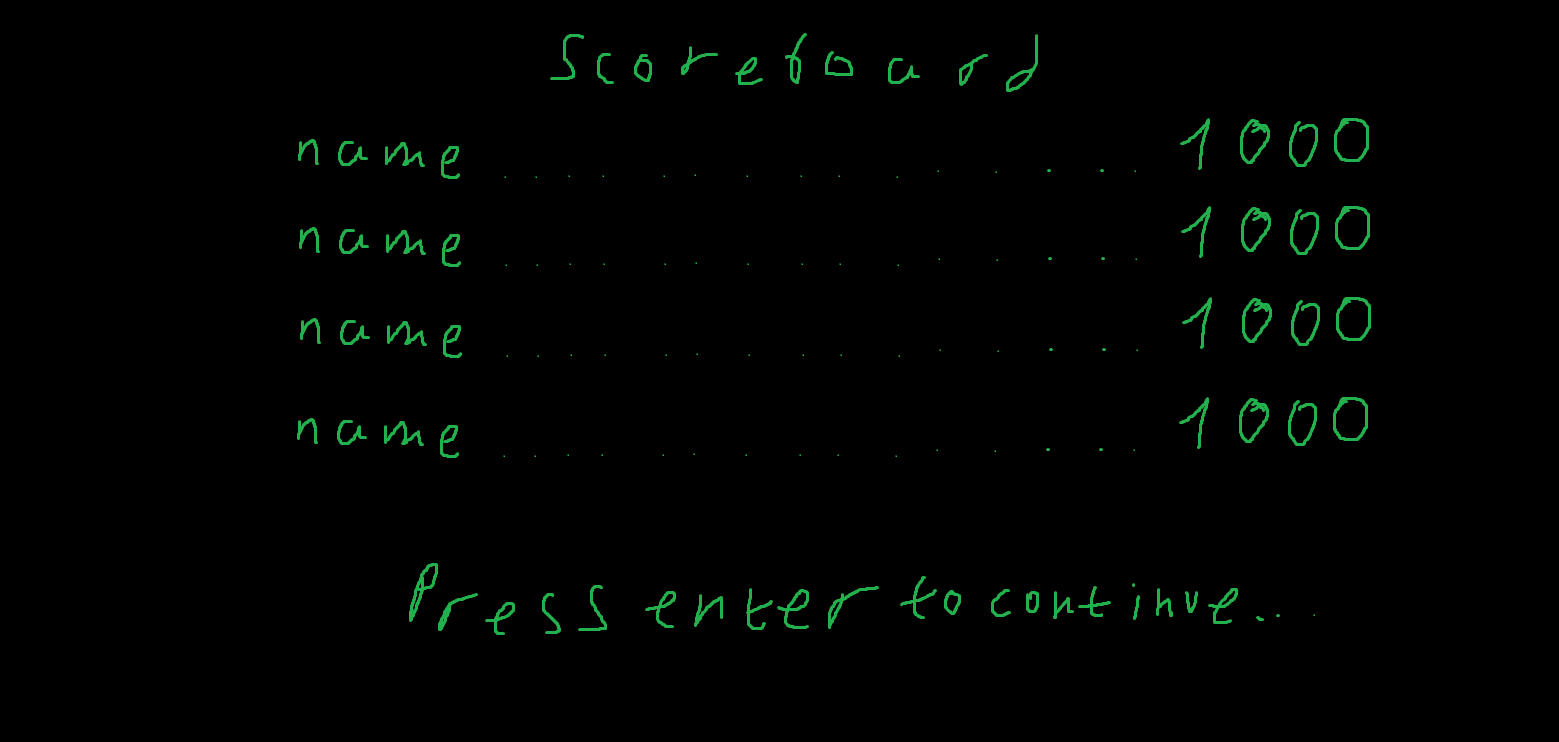 Scoreboard
name ................ 1000
name ................ 1000
name ................ 1000
name ................ 1000
Press enter to continue...